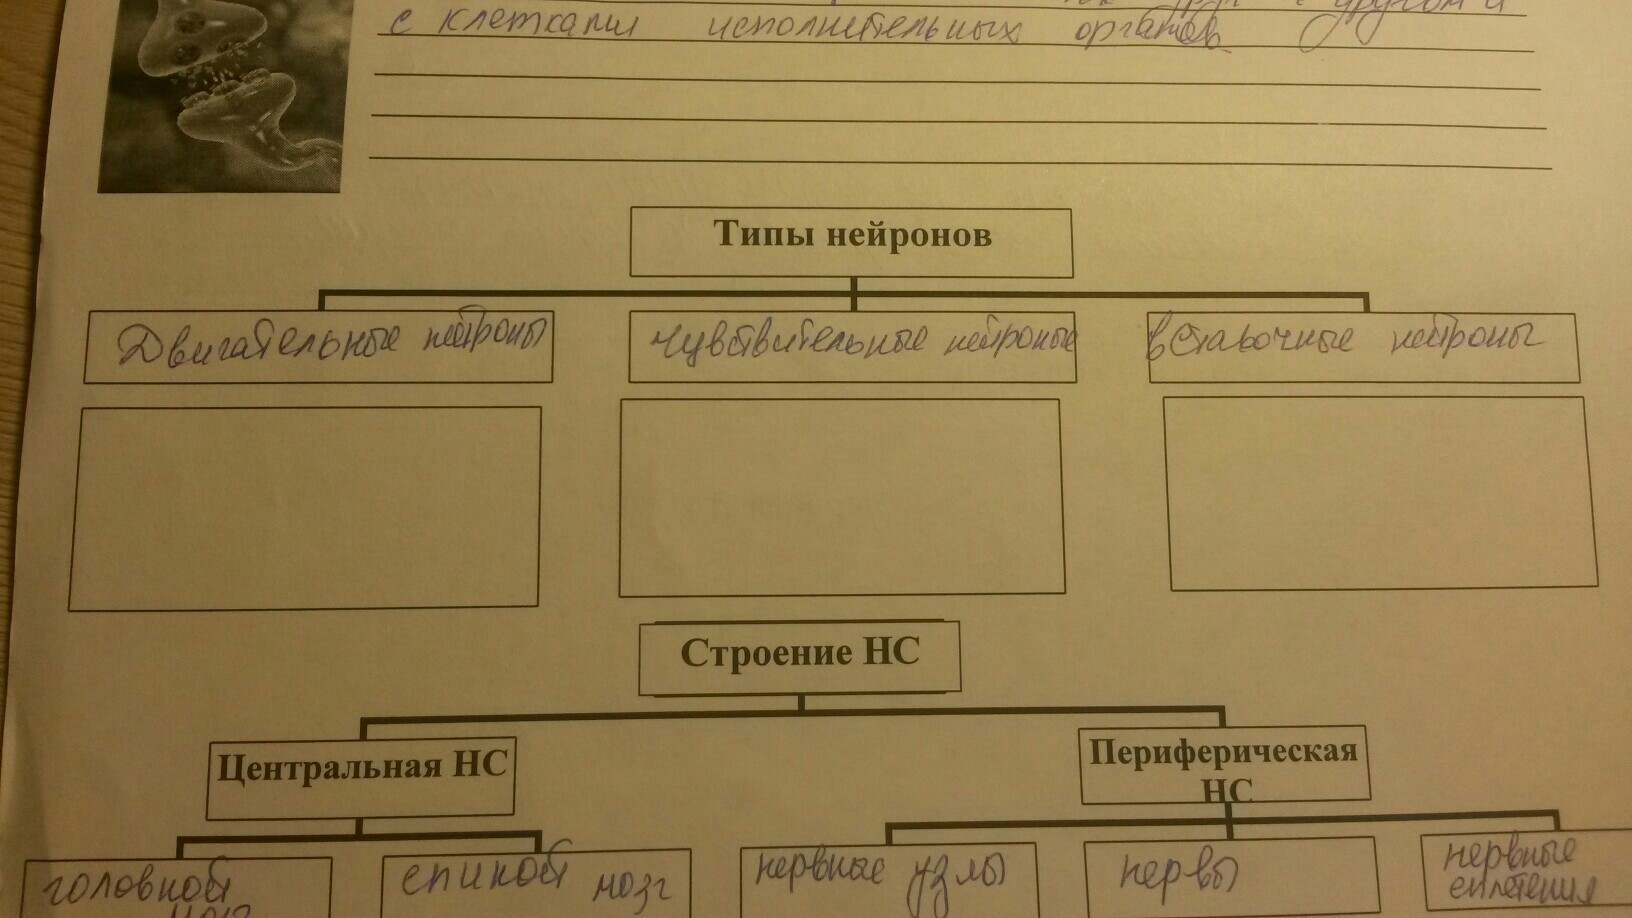 друг с другом и
с клетками исполнительных органов
Типы нейронов
Двигательные нейроны
чувствительные нейроные
вставочные нейроны
Строение НС
Центральная НС
Периферическая
НС
головной
мозг
спиной мозг
нервные узлы
нервы
нервные
сплетения